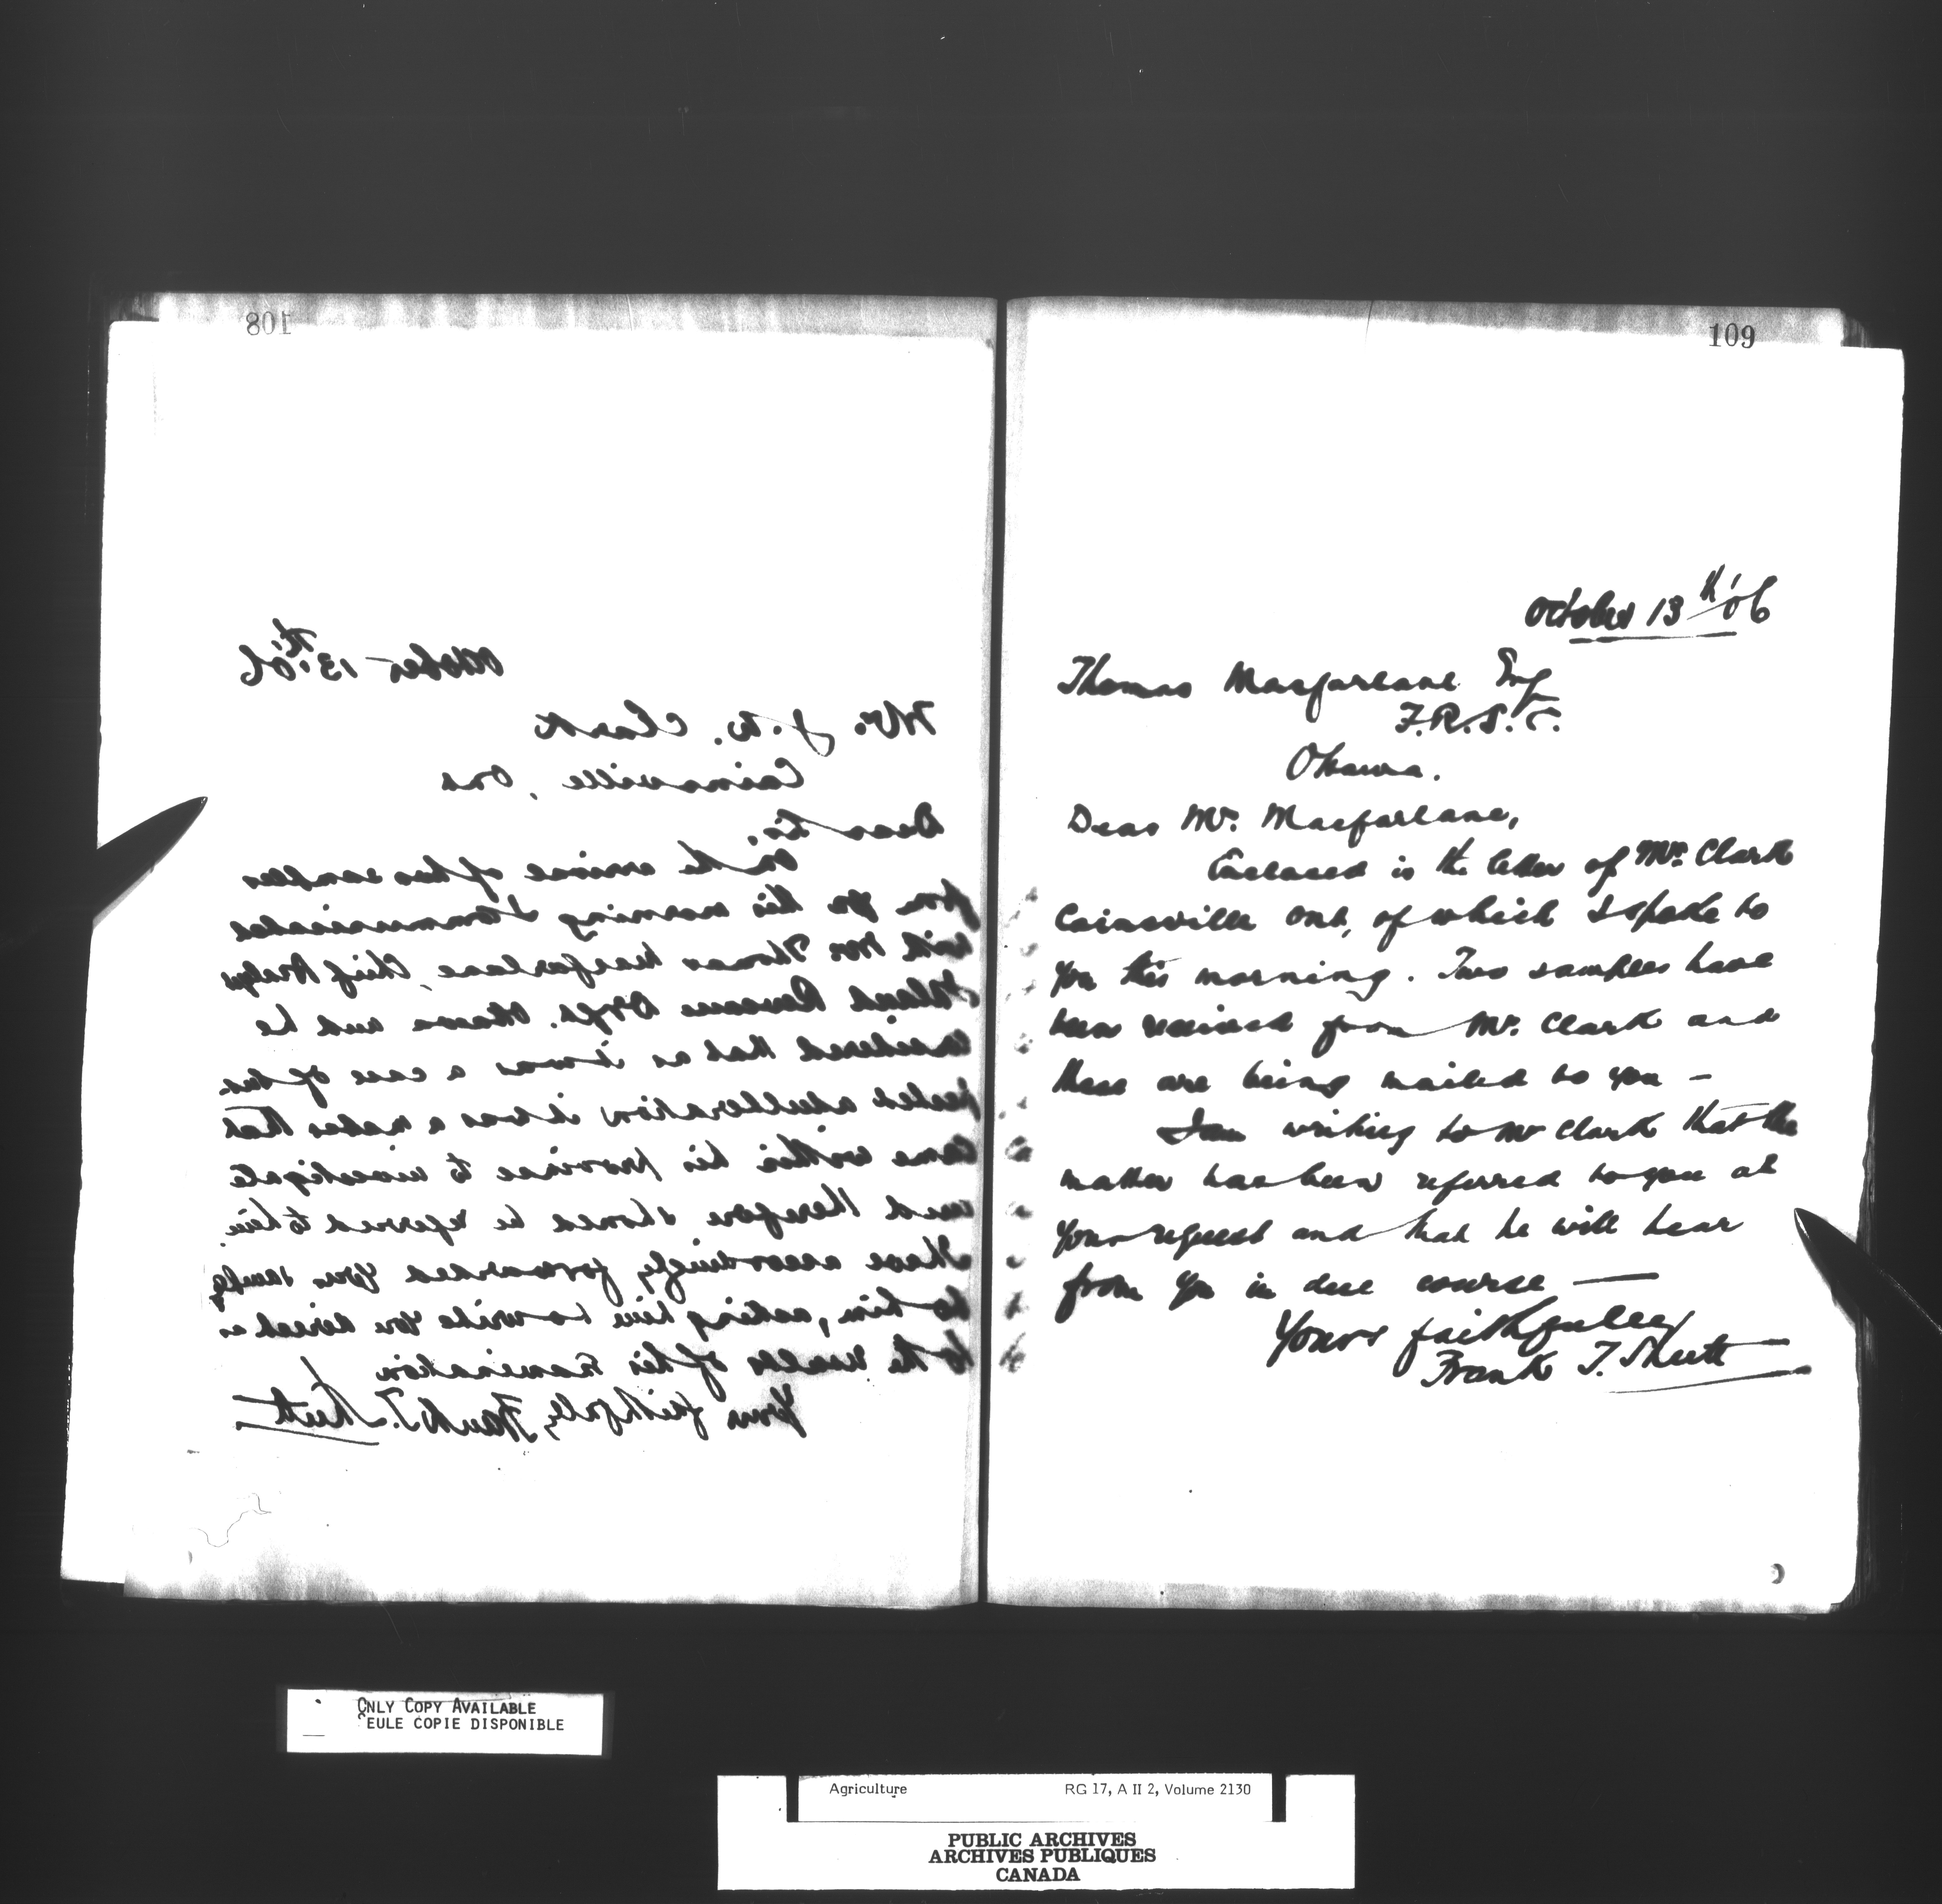 108
October 13th '06
Mr. J. W. Clark
Cainsville, Ont
Dear Sir,
On the arrival of two samples
from you this morning I communicated
with Mr Thomas Macfarlane, Chief Analyst
Inland Revenue Dept. Ottawa and he
considered that as it was a case of sus
pected adulteration it was a matter that
came within his province to investigate
and therefore should be referred to him.
I have accordingly forwarded your samples
to him, asking him to write you direct as
to the results of his Examination
Yours faithfully, Frank T. Shutt
109
October 13th '06
Thomas Macfarlane Esq
F.R.S.C.
Ottawa.
Dear Mr. Macfarlane,
Enclosed is the letter of Mr. Clark
Cainsville Ont, of which I spoke to
you this morning. Two samples have
been received from Mr. Clark and
these are being mailed to you –
I am writing to Mr Clark that the
matter has been referred to you at
your request and that he will hear
from you in due course —
Yours faithfully
Frank T. Shutt
ONLY COPY AVAILABLE
EULE COPIE DISPONIBLE
Agriculture RG 17, A II 2, Volume 2130
PUBLIC ARCHIVES
ARCHIVES PUBLIQUES
CANADA